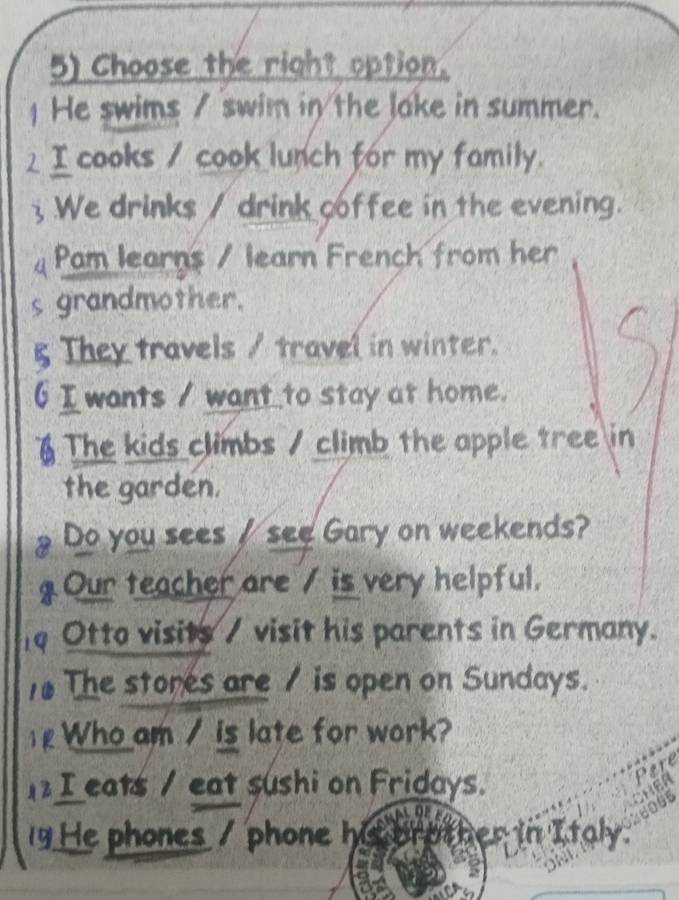 5) Choose the right option.
1 He swims / swim in the lake in summer.
2 I cooks / cook lunch for my family.
3 We drinks / drink coffee in the evening.
4 Pam learns / learn French from her
5 grandmother.
5 They travels / travel in winter.
6 I wants / want to stay at home.
The kids climbs / climb the apple tree in
the garden.
8 Do you sees / see Gary on weekends?
Our teacher are / is very helpful.
Otto visits / visit his parents in Germany.
The stores are / is open on Sundays.
Who am / is late for work?
12 I eats / eat sushi on Fridays.
He phones / phone his brother in Italy.